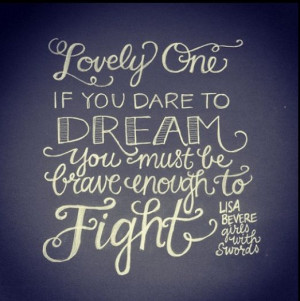 Lovely One
IF YOU DARE TO
DREAM
you must be
brave enough to
Fight
LISA
BEVERE
girls
with
Swords